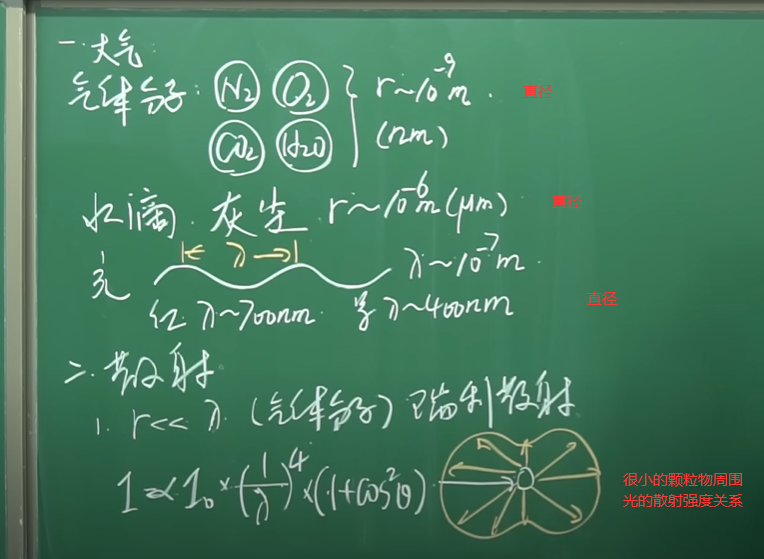 一.大气:
气体分子: N₂ O₂ r~10⁻⁹m. 直径
CO₂ H₂O (nm)
水滴. 灰尘 r~10⁻⁶m(μm) 直径
λ
光 λ~10⁻⁷m.
直径
红 λ~700nm. 紫 λ~400nm
二.散射
1. r<<λ (气体分子) 瑞利散射
I∝I₀×(1/λ)⁴×(1+cos²θ)
很小的颗粒物周围
光的散射强度关系